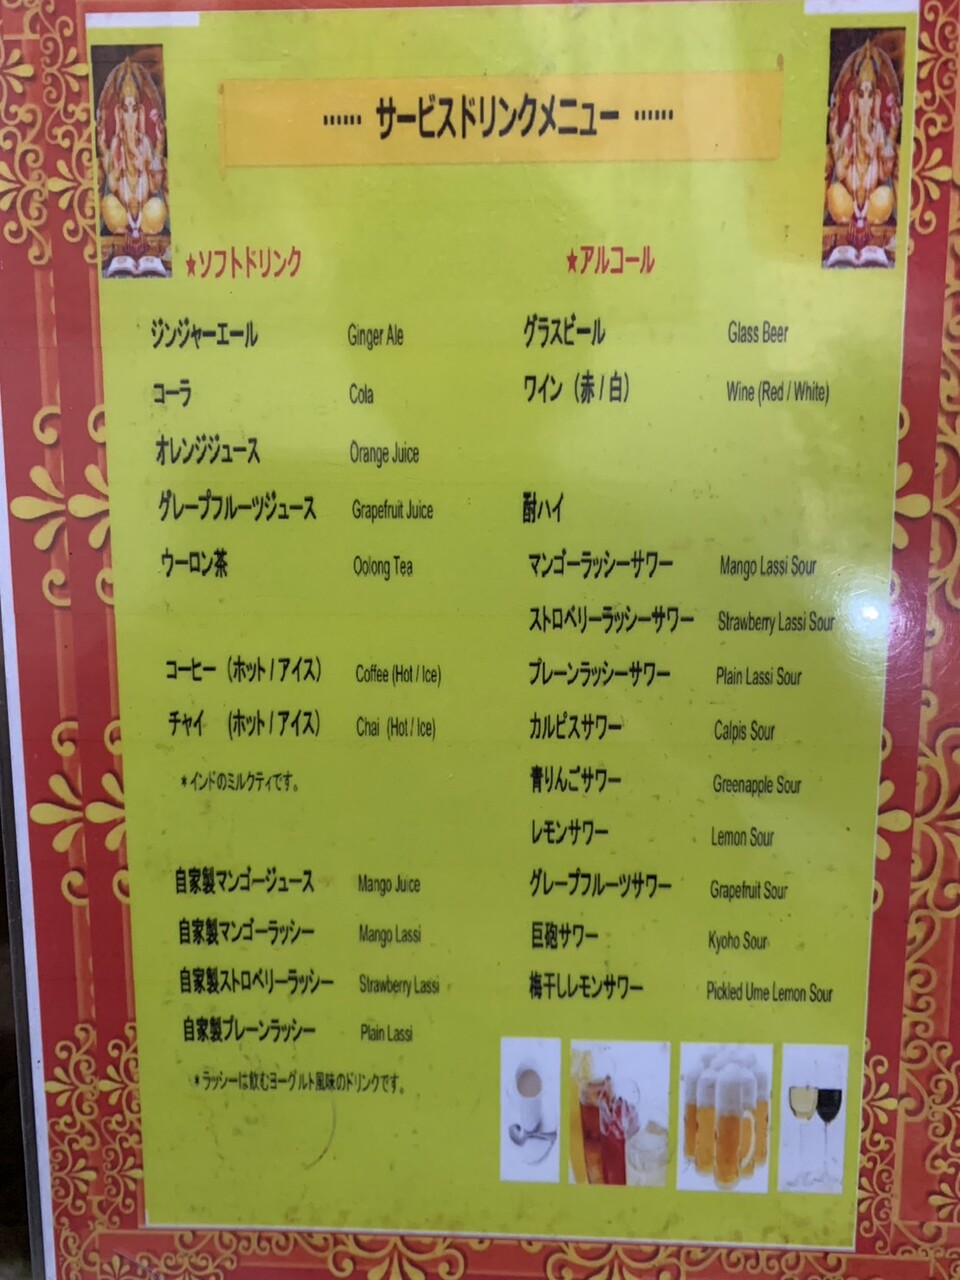 …… サービスドリンクメニュー ……
★ソフトドリンク
ジンジャーエール Ginger Ale
コーラ Cola
オレンジジュース Orange Juice
グレープフルーツジュース Grapefruit Juice
ウーロン茶 Oolong Tea
コーヒー（ホット / アイス） Coffee (Hot / Ice)
チャイ （ホット / アイス） Chai (Hot / Ice)
＊インドのミルクティです。
自家製マンゴージュース Mango Juice
自家製マンゴーラッシー Mango Lassi
自家製ストロベリーラッシー Strawberry Lassi
自家製プレーンラッシー Plain Lassi
＊ラッシーは飲むヨーグルト風味のドリンクです。
★アルコール
グラスビール Glass Beer
ワイン（赤 / 白） Wine (Red / White)
酎ハイ
マンゴーラッシーサワー Mango Lassi Sour
ストロベリーラッシーサワー Strawberry Lassi Sour
プレーンラッシーサワー Plain Lassi Sour
カルピスサワー Calpis Sour
青りんごサワー Greenapple Sour
レモンサワー Lemon Sour
グレープフルーツサワー Grapefruit Sour
巨砲サワー Kyoho Sour
梅干しレモンサワー Pickled Ume Lemon Sour